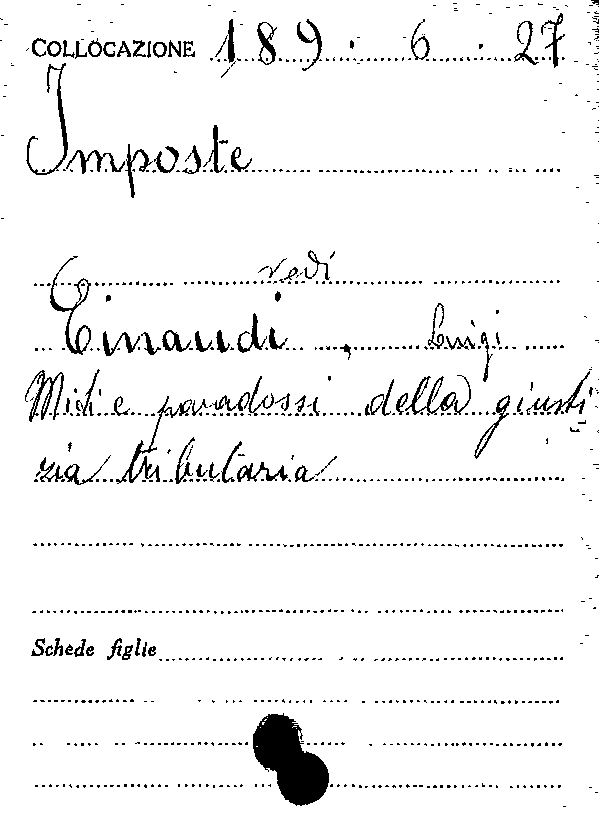 COLLOCAZIONE 189 . 6 . 27
Imposte
vedi
Einaudi , Luigi
Miti e paradossi della giusti
zia tributaria
Schede figlie